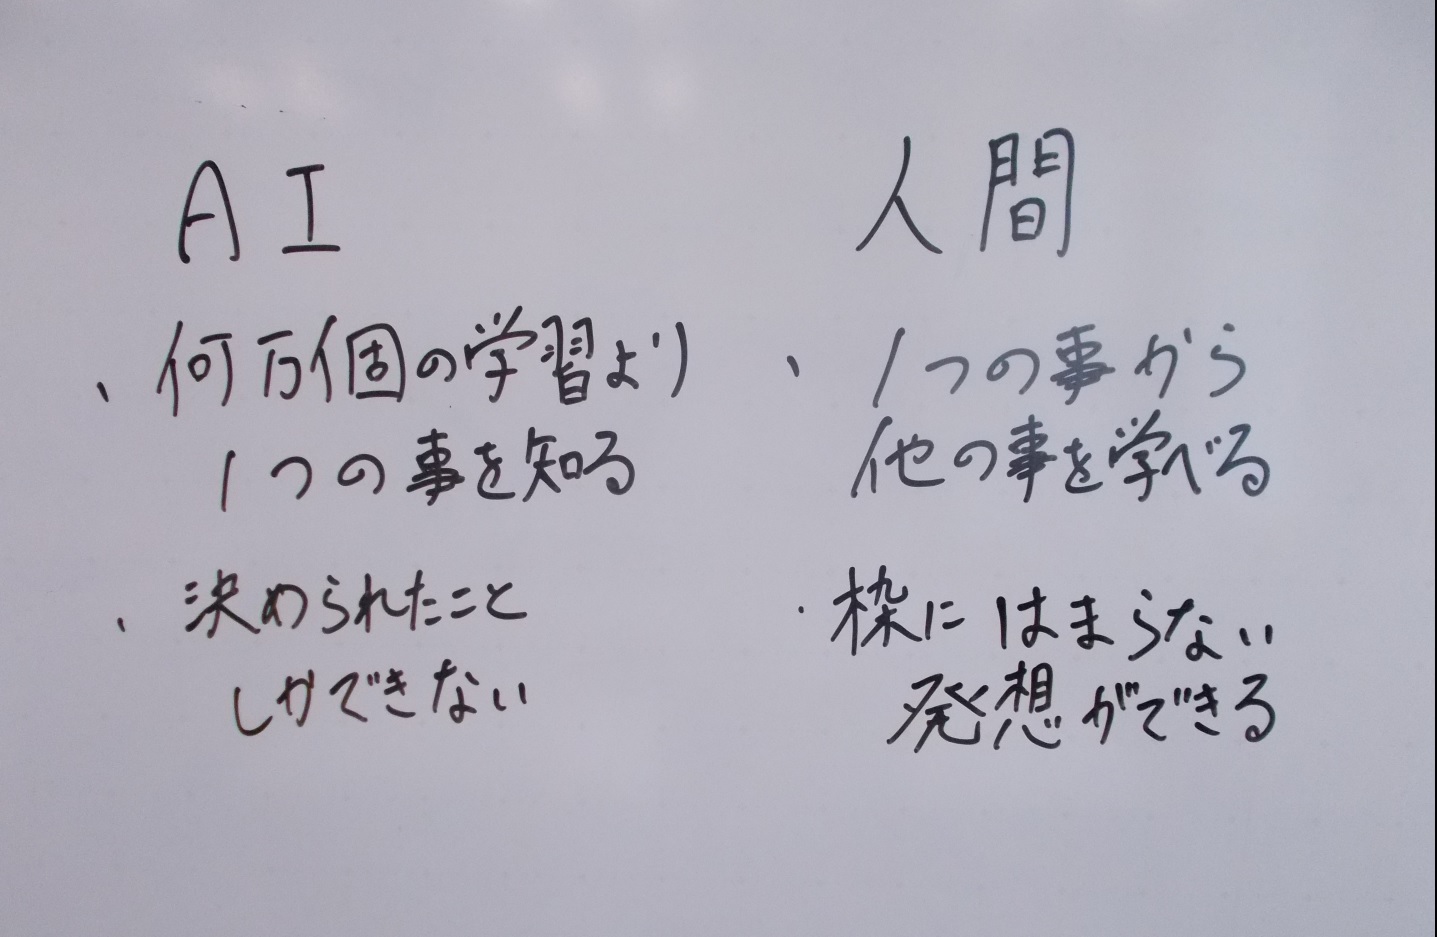 AI
・何万個の学習より
1つの事を知る
・決められたこと
しかできない
人間
・1つの事から
他の事を学べる
・枠にはまらない
発想ができる